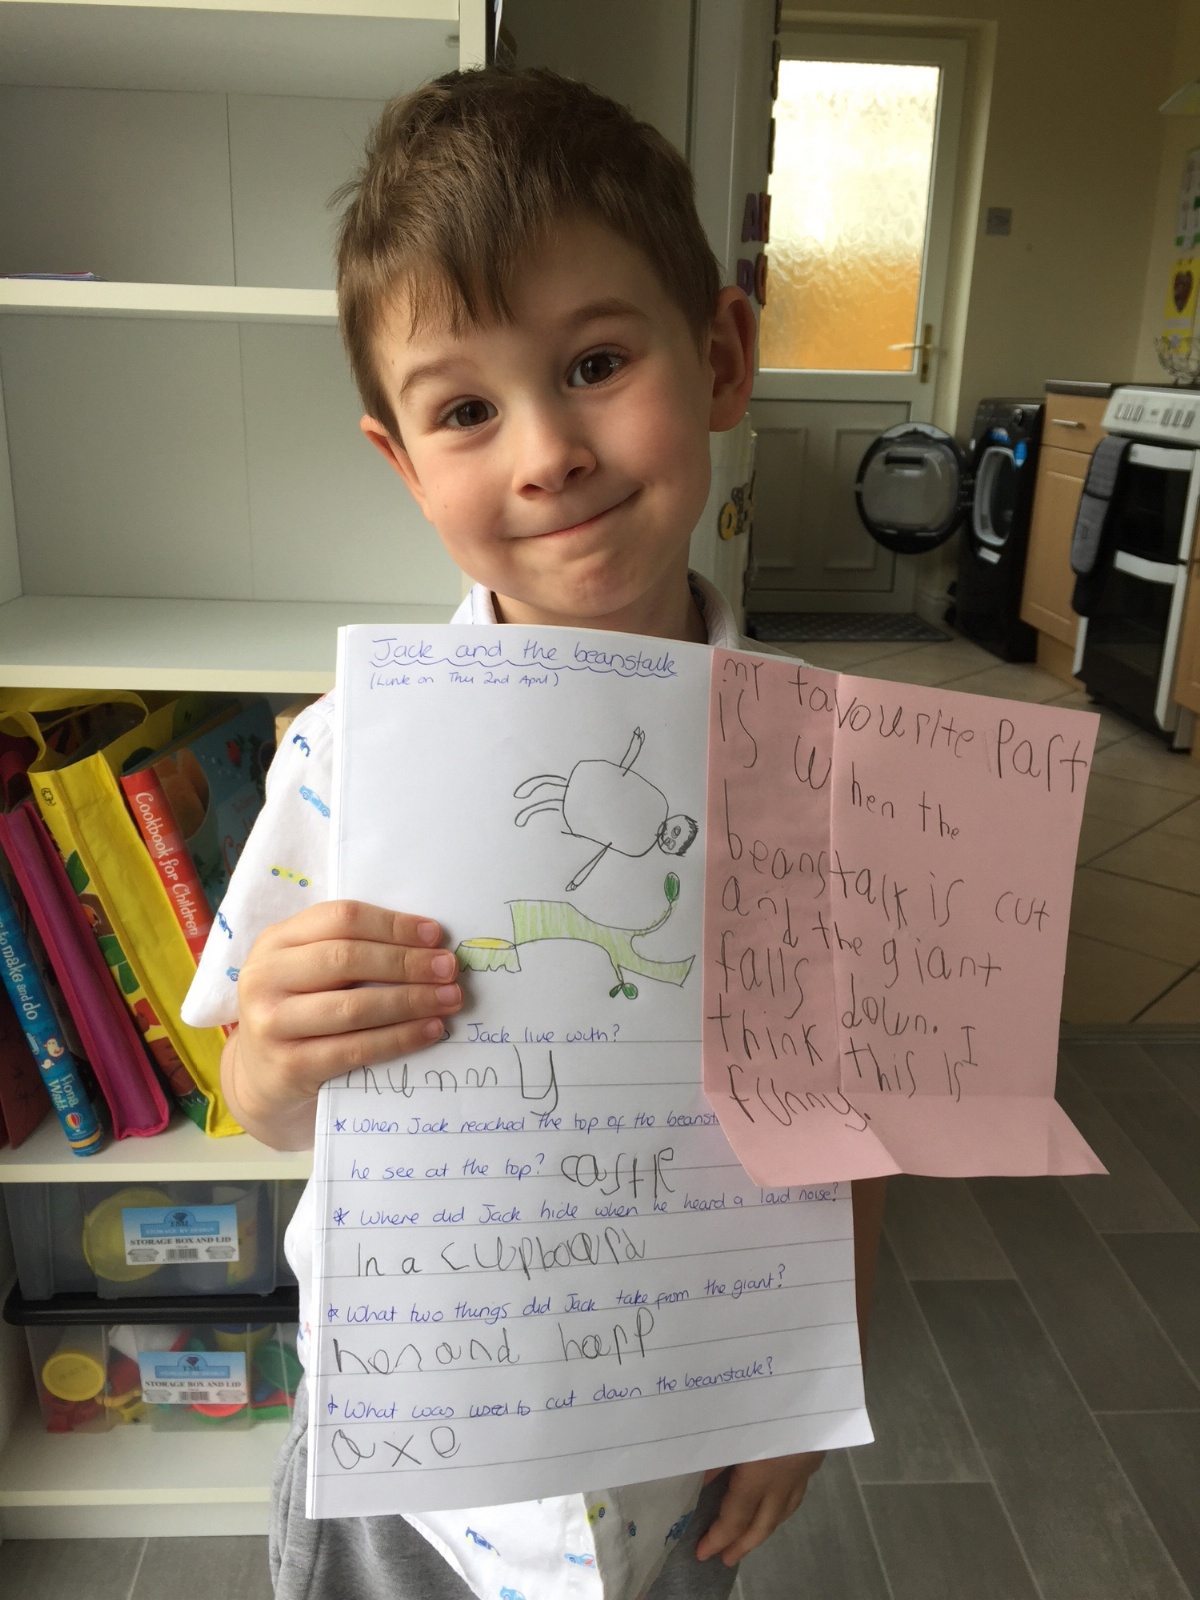 Jack and the beanstalk
(Link on Thu 2nd April)
Jack live with?
mummy
* When Jack reached the top of the beanst
he see at the top? castle
* Where did Jack hide when he heard a loud noise?
In a cupboard
* What two things did Jack take from the giant?
hen and harp
* What was used to cut down the beanstalk?
axe
my favourite Part
is when the
beanstalk is cut
and the giant
falls down. I
think this is
funny.
Cookbook for Children
to make and do
Fiona
Watt
STORAGE BOX AND LID
STORAGE BOX AND LID